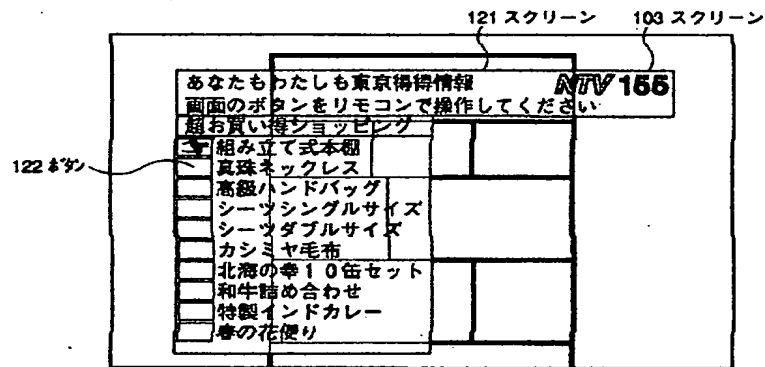 121 スクリーン
103 スクリーン
あなたもわたしも東京得得情報 NTV 155
画面のボタンをリモコンで操作してください
超お買い得ショッピング
組み立て式本棚
122 ボタン
真珠ネックレス
高級ハンドバッグ
シーツシングルサイズ
シーツダブルサイズ
カシミヤ毛布
北海の幸10缶セット
和牛詰め合わせ
特製インドカレー
春の花便り